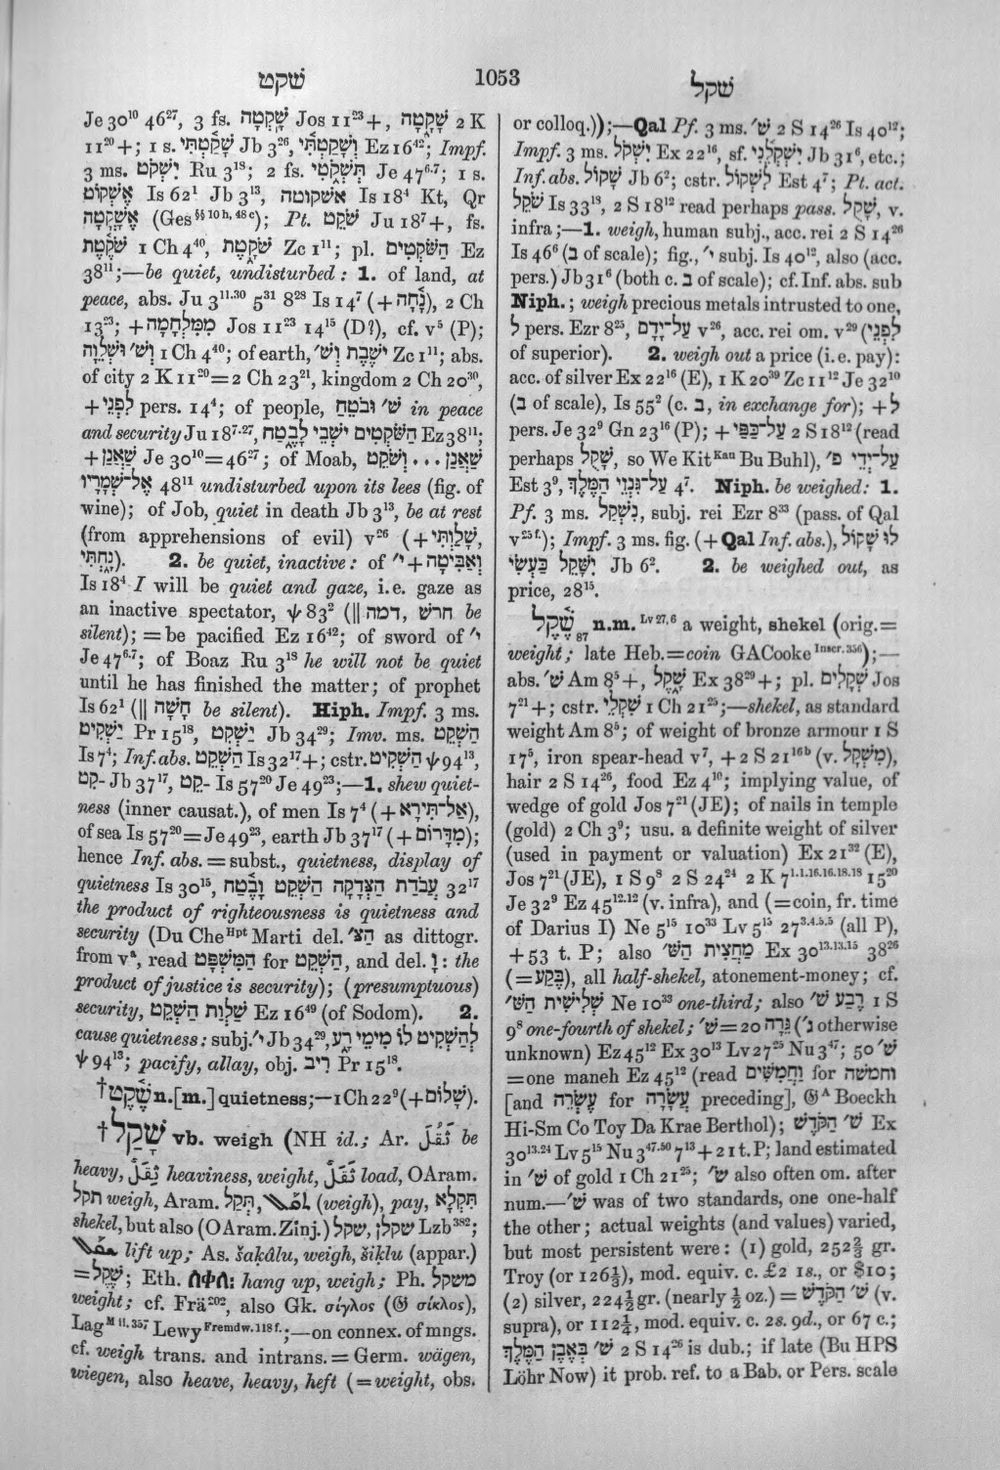 שקט
1053
שקל
Je 30¹⁰ 46²⁷, 3 fs. שָֽׁקְטָה Jos 11²³+, שָׁקָ֑טָה 2 K
11²⁰+; 1 s. שָׁקַ֫טְתִּי Jb 3²⁶, וְשָׁקַטְתִּ֫י Ez 16⁴²; Impf.
3 ms. יִשְׁקֹט Ru 3¹⁸; 2 fs. תִּשְׁקֹ֫טִי Je 47⁶·⁷; 1 s.
אֶשְׁקוֹט Is 62¹ Jb 3¹³, אשקוטה Is 18⁴ Kt, Qr
אֶשְׁקֳטָה (Ges§§ 10 h, 48 c); Pt. שֹׁקֵט Ju 18⁷+, fs.
שֹׁקֶ֫טֶת 1 Ch 4⁴⁰, שֹׁקָ֑טֶת Zc 1¹¹; pl. הַשֹּׁקְטִים Ez
38¹¹;—be quiet, undisturbed: 1. of land, at
peace, abs. Ju 3¹¹·³⁰ 5³¹ 8²⁸ Is 14⁷ (+נָ֫חָה), 2 Ch
13²³; +מִמִּלְחָמָה Jos 11²³ 14¹⁵ (D?), cf. v⁵ (P);
וְשׁ׳ וּשְׁלֵוָה 1 Ch 4⁴⁰; of earth, ישֶׁבֶת וְשׁ׳ Zc 1¹¹; abs.
of city 2 K 11²⁰=2 Ch 23²¹, kingdom 2 Ch 20³⁰,
+לִפְנֵי pers. 14⁴; of people, שׁ׳ וּבֹטֵחַ in peace
and security Ju 18⁷·²⁷, הַשֹּׁקְטִים ישְׁבֵי לָבֶטַח Ez 38¹¹;
+שַׁאֲנַן Je 30¹⁰=46²⁷; of Moab, שַׁאֲנַן ... וְשֹׁקֵט
אֶל־שְׁמָרָיו 48¹¹ undisturbed upon its lees (fig. of
wine); of Job, quiet in death Jb 3¹³, be at rest
(from apprehensions of evil) v²⁶ (+שָׁלַוְתִּי,
נַ֫חְתִּי). 2. be quiet, inactive: of י׳ +וְאַבִּיטָה
Is 18⁴ I will be quiet and gaze, i.e. gaze as
an inactive spectator, ψ 83² (|| דמה, חרשׁ be
silent); =be pacified Ez 16⁴²; of sword of י׳
Je 47⁶·⁷; of Boaz Ru 3¹⁸ he will not be quiet
until he has finished the matter; of prophet
Is 62¹ (|| חָשָׁה be silent). Hiph. Impf. 3 ms.
יַשְׁקִיט Pr 15¹⁸, יַשְׁקִט Jb 34²⁹; Imv. ms. הַשְׁקֵט
Is 7⁴; Inf. abs. הַשְׁקֵט Is 32¹⁷+; cstr. הַשְׁקִיט ψ 94¹³,
־קִט Jb 37¹⁷, ־קֵט Is 57²⁰ Je 49²³;—1. shew quiet-
ness (inner causat.), of men Is 7⁴ (+אַל־תִּירָא),
of sea Is 57²⁰=Je 49²³, earth Jb 37¹⁷ (+מִדָּרוֹם);
hence Inf. abs. = subst., quietness, display of
quietness Is 30¹⁵, עֲבֹדַת הַצְּדָקָה הַשְׁקֵט וָבֶ֫טַח 32¹⁷
the product of righteousness is quietness and
security (Du Che Hpt Marti del. הצ׳ as dittogr.
from vᵃ, read הַמִּשְׁפָּט for הַשְׁקֵט, and del. וָ: the
product of justice is security); (presumptuous)
security, שַׁלְוַת הַשְׁקֵט Ez 16⁴⁹ (of Sodom). 2.
cause quietness: subj. י׳ Jb 34²⁹, לְהַשְׁקִיט לוֹ מִימֵי רָע
ψ 94¹³; pacify, allay, obj. רִיב Pr 15¹⁸.
†שֶׁ֫קֶט n.[m.] quietness;—1 Ch 22⁹ (+שָׁלוֹם).
†שָׁקַל vb. weigh (NH id.; Ar. ثَقُلَ be
heavy, ثِقَلٌ heaviness, weight, ثِقْلٌ load, OAram.
תקל weigh, Aram. תְּקַל, ܬܩܠ (weigh), pay, תִּקְלָא
shekel, but also (OAram. Zinj.) שקל, שקלן Lzb³⁸²;
lift up; As. šaḳâlu, weigh, šiḳlu (appar.)
=שֶׁקֶל; Eth. ሰቀለ: hang up, weigh; Ph. משקל
weight; cf. Frä²⁰², also Gk. σίγλος (𝔊 σίκλος),
Lag M ii. 357 Lewy Fremdw. 118 f.;—on connex. of mngs.
cf. weigh trans. and intrans. = Germ. wägen,
wiegen, also heave, heavy, heft (=weight, obs.
or colloq.));—Qal Pf. 3 ms. שׁ׳ 2 S 14²⁶ Is 40¹²;
Impf. 3 ms. יִשְׁקֹל Ex 22¹⁶, sf. יִשְׁקְלֵ֫נִי Jb 31⁶, etc.;
Inf. abs. שָׁקוֹל Jb 6²; cstr. לִשְׁקוֹל Est 4⁷; Pt. act.
שֹׁקֵל Is 33¹⁸, 2 S 18¹² read perhaps pass. שָׁקֻל, v.
infra;—1. weigh, human subj., acc. rei 2 S 14²⁶
Is 46⁶ (ב of scale); fig., י׳ subj. Is 40¹², also (acc.
pers.) Jb 31⁶ (both c. ב of scale); cf. Inf. abs. sub
Niph.; weigh precious metals intrusted to one,
ל pers. Ezr 8²⁵, עַל־יָדָם v²⁶, acc. rei om. v²⁹ (לִפְנֵי
of superior). 2. weigh out a price (i.e. pay):
acc. of silver Ex 22¹⁶ (E), 1 K 20³⁹ Zc 11¹² Je 32¹⁰
(ב of scale), Is 55² (c. ב, in exchange for); +ל
pers. Je 32⁹ Gn 23¹⁶ (P); +עַל־כַּפַּי 2 S 18¹² (read
perhaps שָׁקֻל, so We Kit Kau Bu Buhl), עַל־יְדֵי פ׳
Est 3⁹, עַל־גִּנְזֵי הַמֶּלֶךְ 4⁷. Niph. be weighed: 1.
Pf. 3 ms. נִשְׁקַל, subj. rei Ezr 8³³ (pass. of Qal
v²⁵ᶠ·); Impf. 3 ms. fig. (+Qal Inf. abs.), לוּ שָׁקוֹל
יִשָּׁקֵל כַּעְשִׂי Jb 6². 2. be weighed out, as
price, 28¹⁵.
שֶׁ֫קֶל 87 n.m. Lv 27, 6 a weight, shekel (orig.=
weight; late Heb.=coin GACooke Inscr. 356);—
abs. שׁ׳ Am 8⁵+, שָׁ֑קֶל Ex 38²⁹+; pl. שְׁקָלִים Jos
7²¹+; cstr. שִׁקְלֵי 1 Ch 21²⁵;—shekel, as standard
weight Am 8⁵; of weight of bronze armour 1 S
17⁵, iron spear-head v⁷, +2 S 21¹⁶ᵇ (v. מִשְׁקָל),
hair 2 S 14²⁶, food Ez 4¹⁰; implying value, of
wedge of gold Jos 7²¹ (JE); of nails in temple
(gold) 2 Ch 3⁹; usu. a definite weight of silver
(used in payment or valuation) Ex 21³² (E),
Jos 7²¹ (JE), 1 S 9⁸ 2 S 24²⁴ 2 K 7¹·¹·¹⁶·¹⁶·¹⁸·¹⁸ 15²⁰
Je 32⁹ Ez 45¹²·¹² (v. infra), and (=coin, fr. time
of Darius I) Ne 5¹⁵ 10³³ Lv 5¹⁵ 27³·⁴·⁵·⁵ (all P),
+53 t. P; also מַחֲצִית הַשׁ׳ Ex 30¹³·¹³·¹⁵ 38²⁶
(=בֶּקַע), all half-shekel, atonement-money; cf.
שְׁלִישִׁית הַשׁ׳ Ne 10³³ one-third; also רֶבַע שׁ׳ 1 S
9⁸ one-fourth of shekel; שׁ׳=20 גֵּרָה (ג׳ otherwise
unknown) Ez 45¹² Ex 30¹³ Lv 27²⁵ Nu 3⁴⁷; 50 שׁ׳
=one maneh Ez 45¹² (read וַחֲמִשִּׁים for וחמשה
[and עֲשָׂרָה for עֶשְׂרֵה preceding], 𝔊ᴬ Boeckh
Hi-Sm Co Toy Da Krae Berthol); שׁ׳ הַקֹּדֶשׁ Ex
30¹³·²⁴ Lv 5¹⁵ Nu 3⁴⁷·⁵⁰ 7¹³+21 t. P; land estimated
in שׁ׳ of gold 1 Ch 21²⁵; שׁ׳ also often om. after
num.—שׁ׳ was of two standards, one one-half
the other; actual weights (and values) varied,
but most persistent were: (1) gold, 252⅔ gr.
Troy (or 126⅓), mod. equiv. c. £2 1s., or $10;
(2) silver, 224½ gr. (nearly ½ oz.) = שׁ׳ הַקֹּדֶשׁ (v.
supra), or 112¼, mod. equiv. c. 2s. 9d., or 67 c.;
שׁ׳ בְּאֶבֶן הַמֶּלֶךְ 2 S 14²⁶ is dub.; if late (Bu HPS
Löhr Now) it prob. ref. to a Bab. or Pers. scale